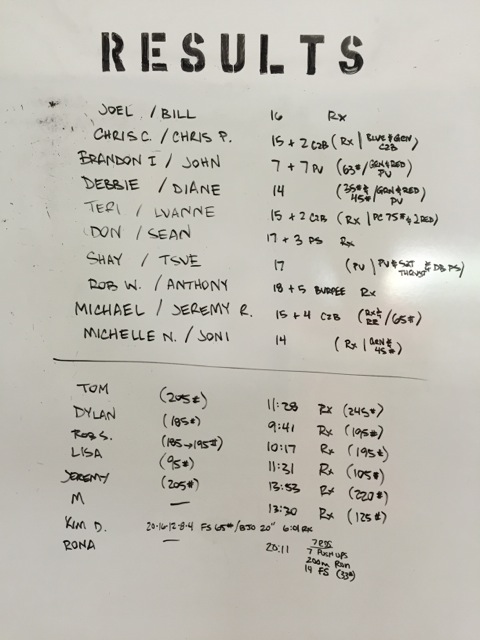 RESULTS
JOEL / BILL 16 Rx
CHRIS C. / CHRIS P. 15 + 2 C2B (Rx | BLUE & GRN C2B)
BRANDON I / JOHN 7 + 7 PU (63# / GRN & RED PU)
DEBBIE / DIANE 14 (35# & 45# / GRN & RED PU)
TERI / LUANNE 15 + 2 C2B (Rx | PC 75# & 2 RED)
DON / SEAN 17 + 3 PS Rx
SHAY / TSUE 17 (PU | PU & SQT THRUST & DB PS)
ROB W. / ANTHONY 18 + 5 BURPEE Rx
MICHAEL / JEREMY R. 15 + 4 C2B (Rx & RR / 65#)
MICHELLE N. / JONI 14 (Rx | GRN & 45#)
TOM (205#) 11:28 Rx (245#)
DYLAN (185#) 9:41 Rx (195#)
ROB S. (185→195#) 10:17 Rx (195#)
LISA (95#) 11:31 Rx (105#)
JEREMY (205#) 13:53 Rx (220#)
M — 13:30 Rx (125#)
KIM D. 20-16-12-8-4 FS 65# / BJO 20" 6:01 Rx
RONA — 20:11 7 RDS
7 PUSH UPS
200m Run
14 FS (33#)